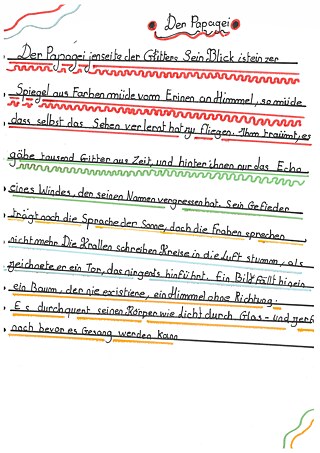 Der Papagei
Der Papagei jenseits der Gitters Sein Blick ist ein zer
Spiegel aus Farben müde vom Erinen an Himmel, so müde
dass selbst das Sehen verlernt hat zu fliegen. Ihm traümt, es
gäbe tausend Gitter aus Zeit, und hinter ihnen nur das Echo
eines Windes, den seinen Namen vergressen hat. Sein Gefieder
trägt noch die Sprache der Sonne, doch die Frahen sprechen
nicht mehr Die Krallen schreiben Kreise in die Luft stumm, als
zeichnete er ein Tor, das nirgents hinführt. Ein Bild fällt hinein
ein Baum, der nie existiere, ein Himmel ohne Richtung.
Es durchquent seinen Körper wie Licht durch Glas - und zerb
noch bevor es Gesang werden kann